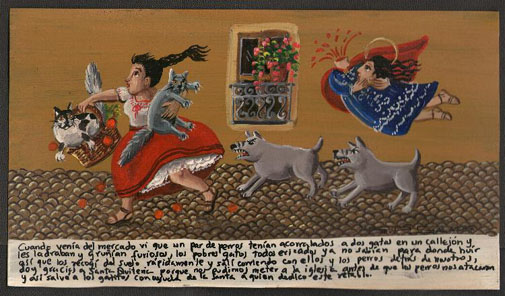 Cuando venía del mercado vi que un par de perros tenían acorralados a dos gatos en un callejón y
les ladraban y gruñían furiosos, los pobres gatos todos erizados ya no sabían para donde huir
así que los recogí del suelo rápidamente y salí corriendo con ellos y los perros detrás de nosotros,
doy gracias a Santa Quiteria porque nos pudimos meter a la iglesia antes de que los perros nos atacaran
y así salvé a los gatitos con ayuda de la santa a quien dedico este retablo.